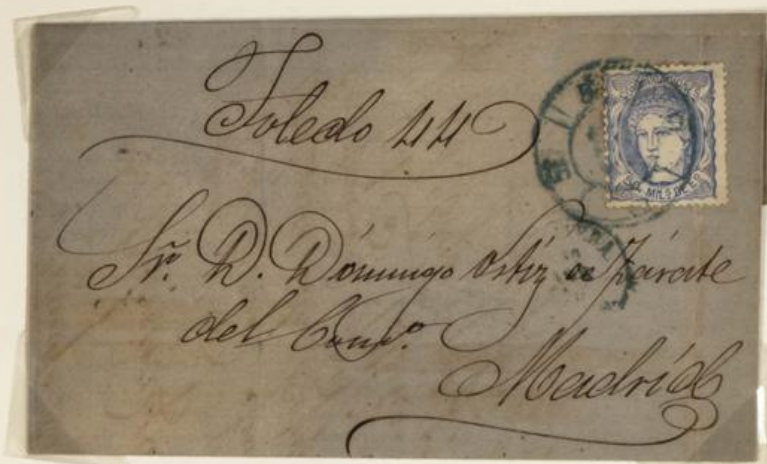 Toledo 44
50 MILS DE E.
Sr. D. Domingo Ortiz de Zárate
del Como.
Madrid